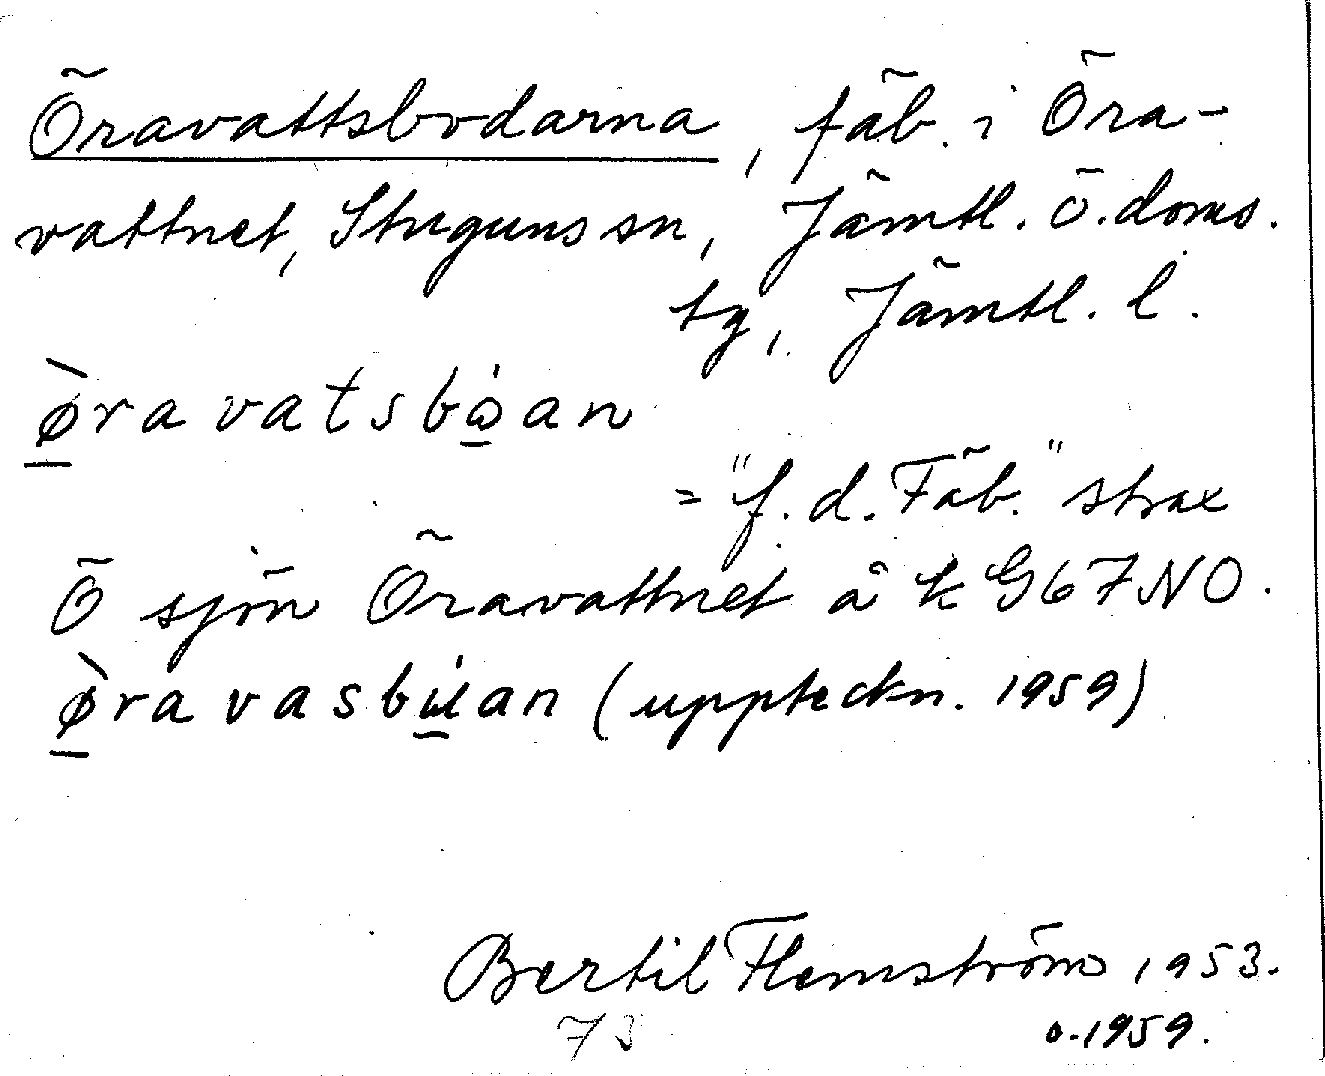 Öravattsbodarna, fäb. i Öra-
vattnet, Stuguns sn, Jämtl. ö. doms.
tg, Jämtl. l.
ø̀ravatsbω̇an
= "f. d. Fäb." strax
Ö sjön Öravattnet å k G67NO.
ø̀ravasbu̇an (uppteckn. 1959)
Bertil Flemström 1953.
73 o. 1959.